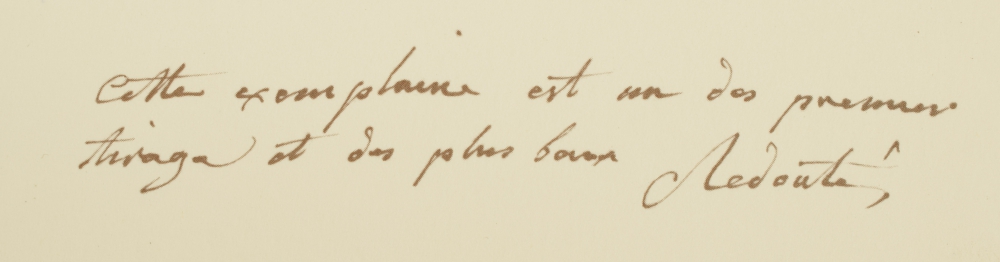 Cette exemplaire est un des premier
tirage et des plus baux Redouté